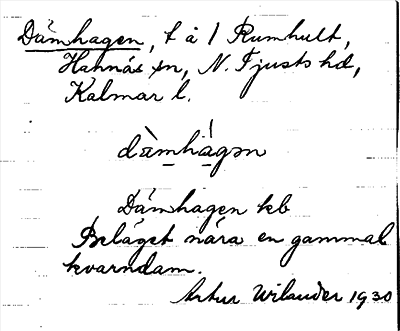 Dämhagen, t å 1 Rumhult,
Hannäs sn, N. Tjusts hd,
Kalmar l.
dämhagən
Dämhagen kb
Beläget nära en gammal
kvarndam.
Artur Wilander 1930